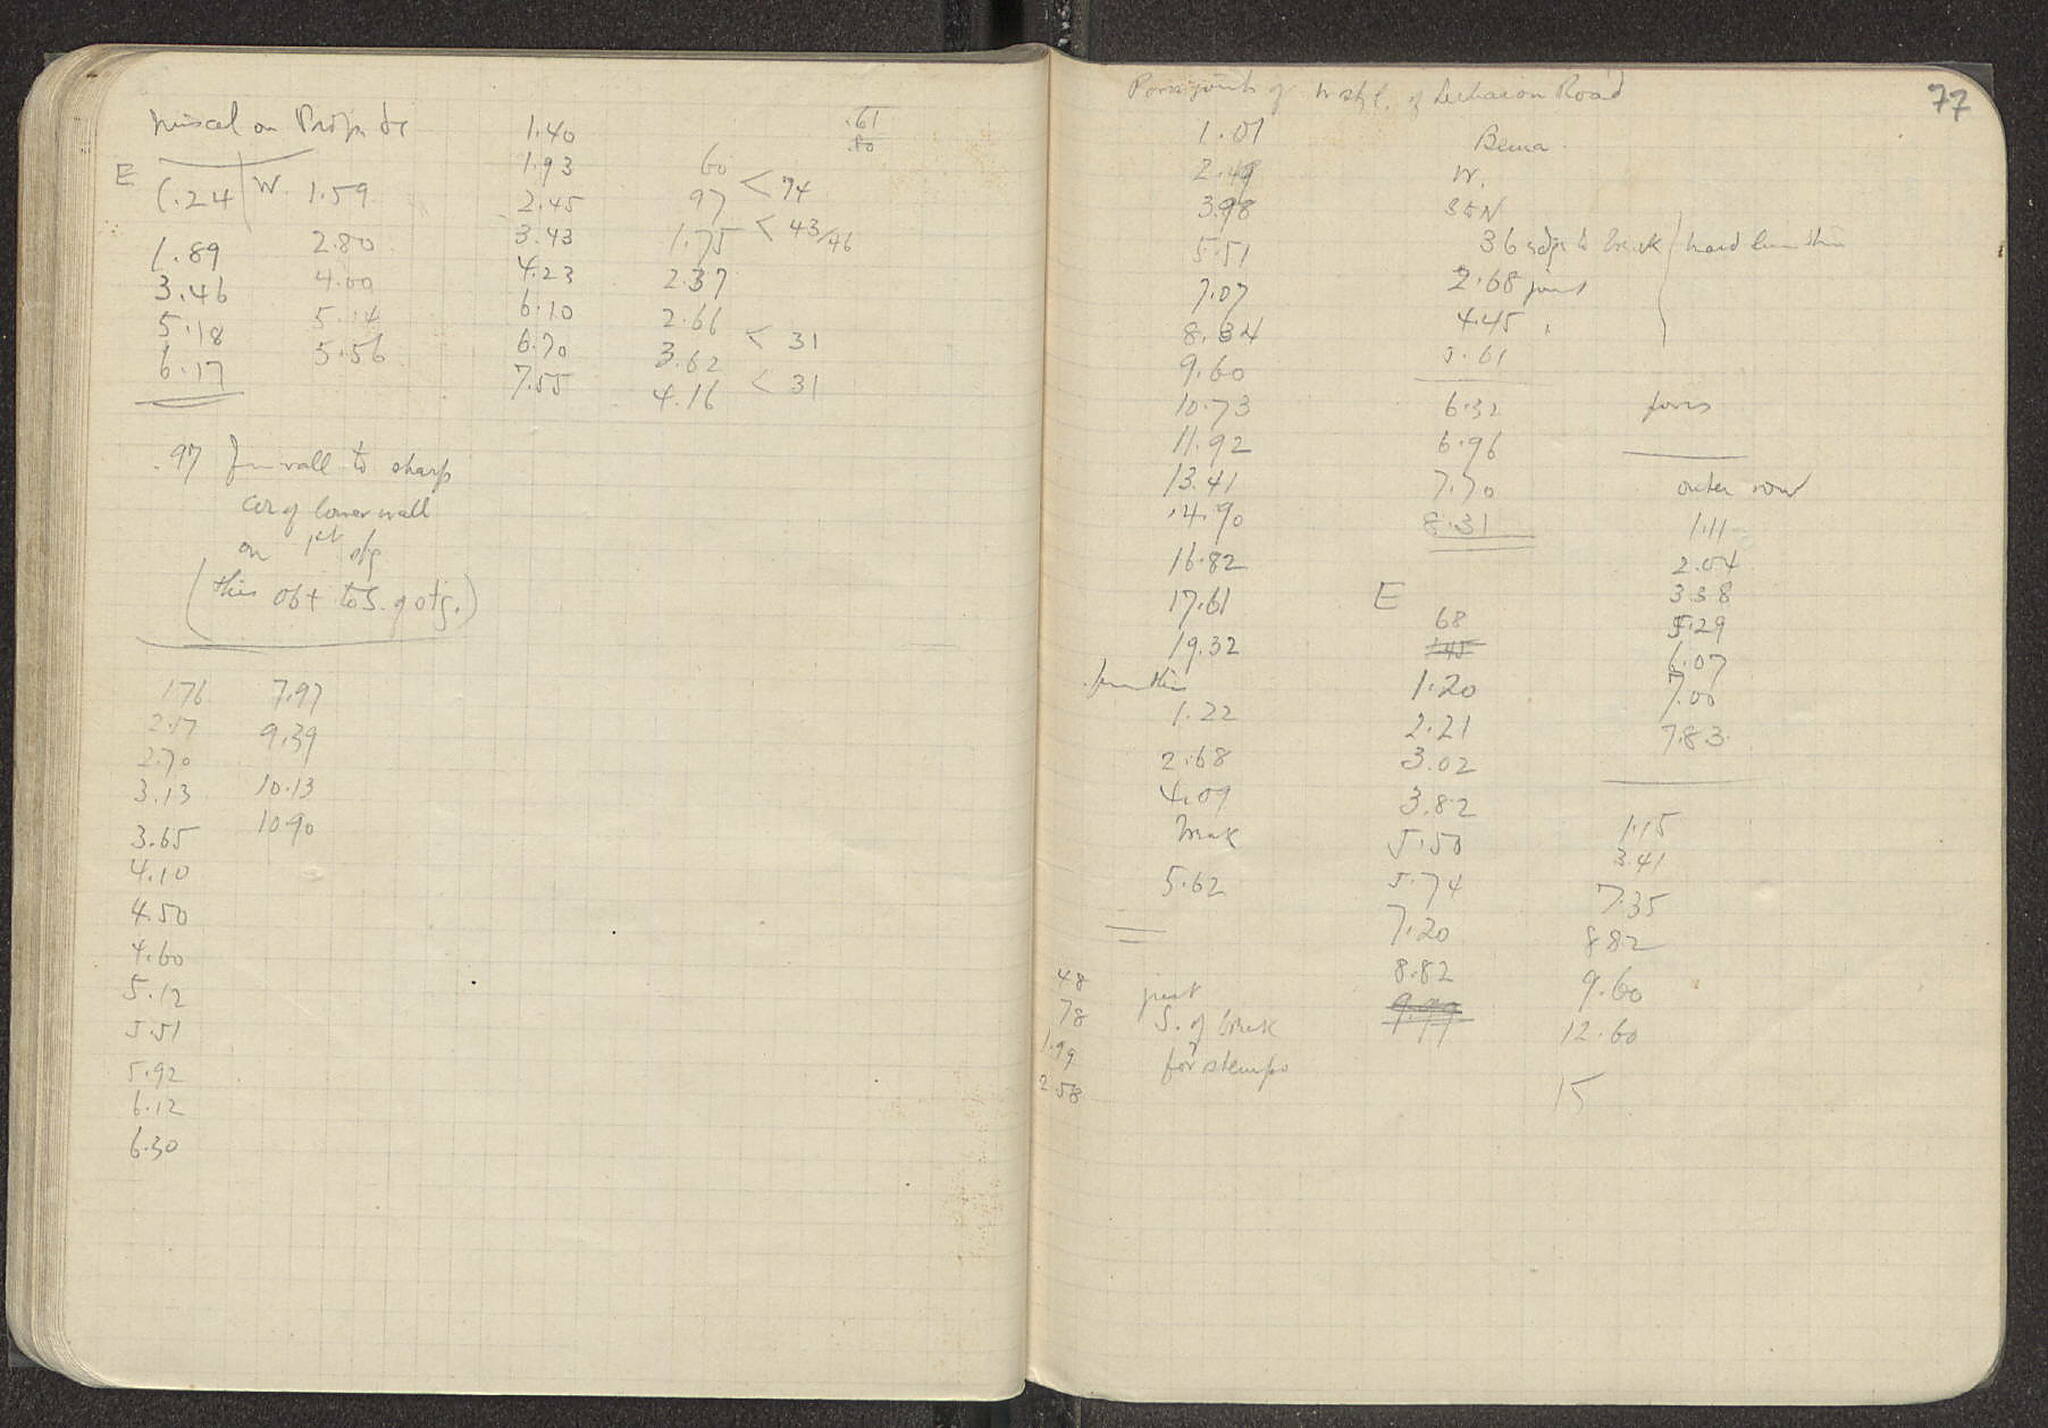 Miscel on Prop
E .24 W. 1.59
1.89 2.80
3.46 4.00
5.18 5.14
6.17 5.56
1.40
1.93
2.45
3.43
4.23
6.10
6.70
7.55
.61
.80
60
97 < 74
1.75 < 43/46
2.37
2.66
3.62 < 31
4.16 < 31
.97 from wall to sharp
cor of lower wall
on 1st
(this obt to S. of)
1.76 7.97
2.57 9.39
2.70 10.13
3.13 10.90
3.65
4.10
4.50
4.60
5.12
5.51
5.92
6.12
6.30
77
Poros joints of W of Lechaion Road
1.01
2.49
3.98
5.51
7.07
8.34
9.60
10.73
11.92
13.41
14.90
16.82
17.61
19.32
from this
1.22
2.68
4.09
break
5.62
48
78
1.99
2.58
S. of break
for
Bema
W.
S to N
36 edge to break hard limestone
2.68 joint
4.45 "
5.61
6.32 poros
6.96
7.70
8.31
E
68
1.45
1.20
2.21
3.02
3.82
5.50
5.74
7.20
8.82
9.99
outer row
1.11
2.04
3.38
5.29
6.07
7.00
7.83
1.15
3.41
7.35
8.82
9.60
12.60
15